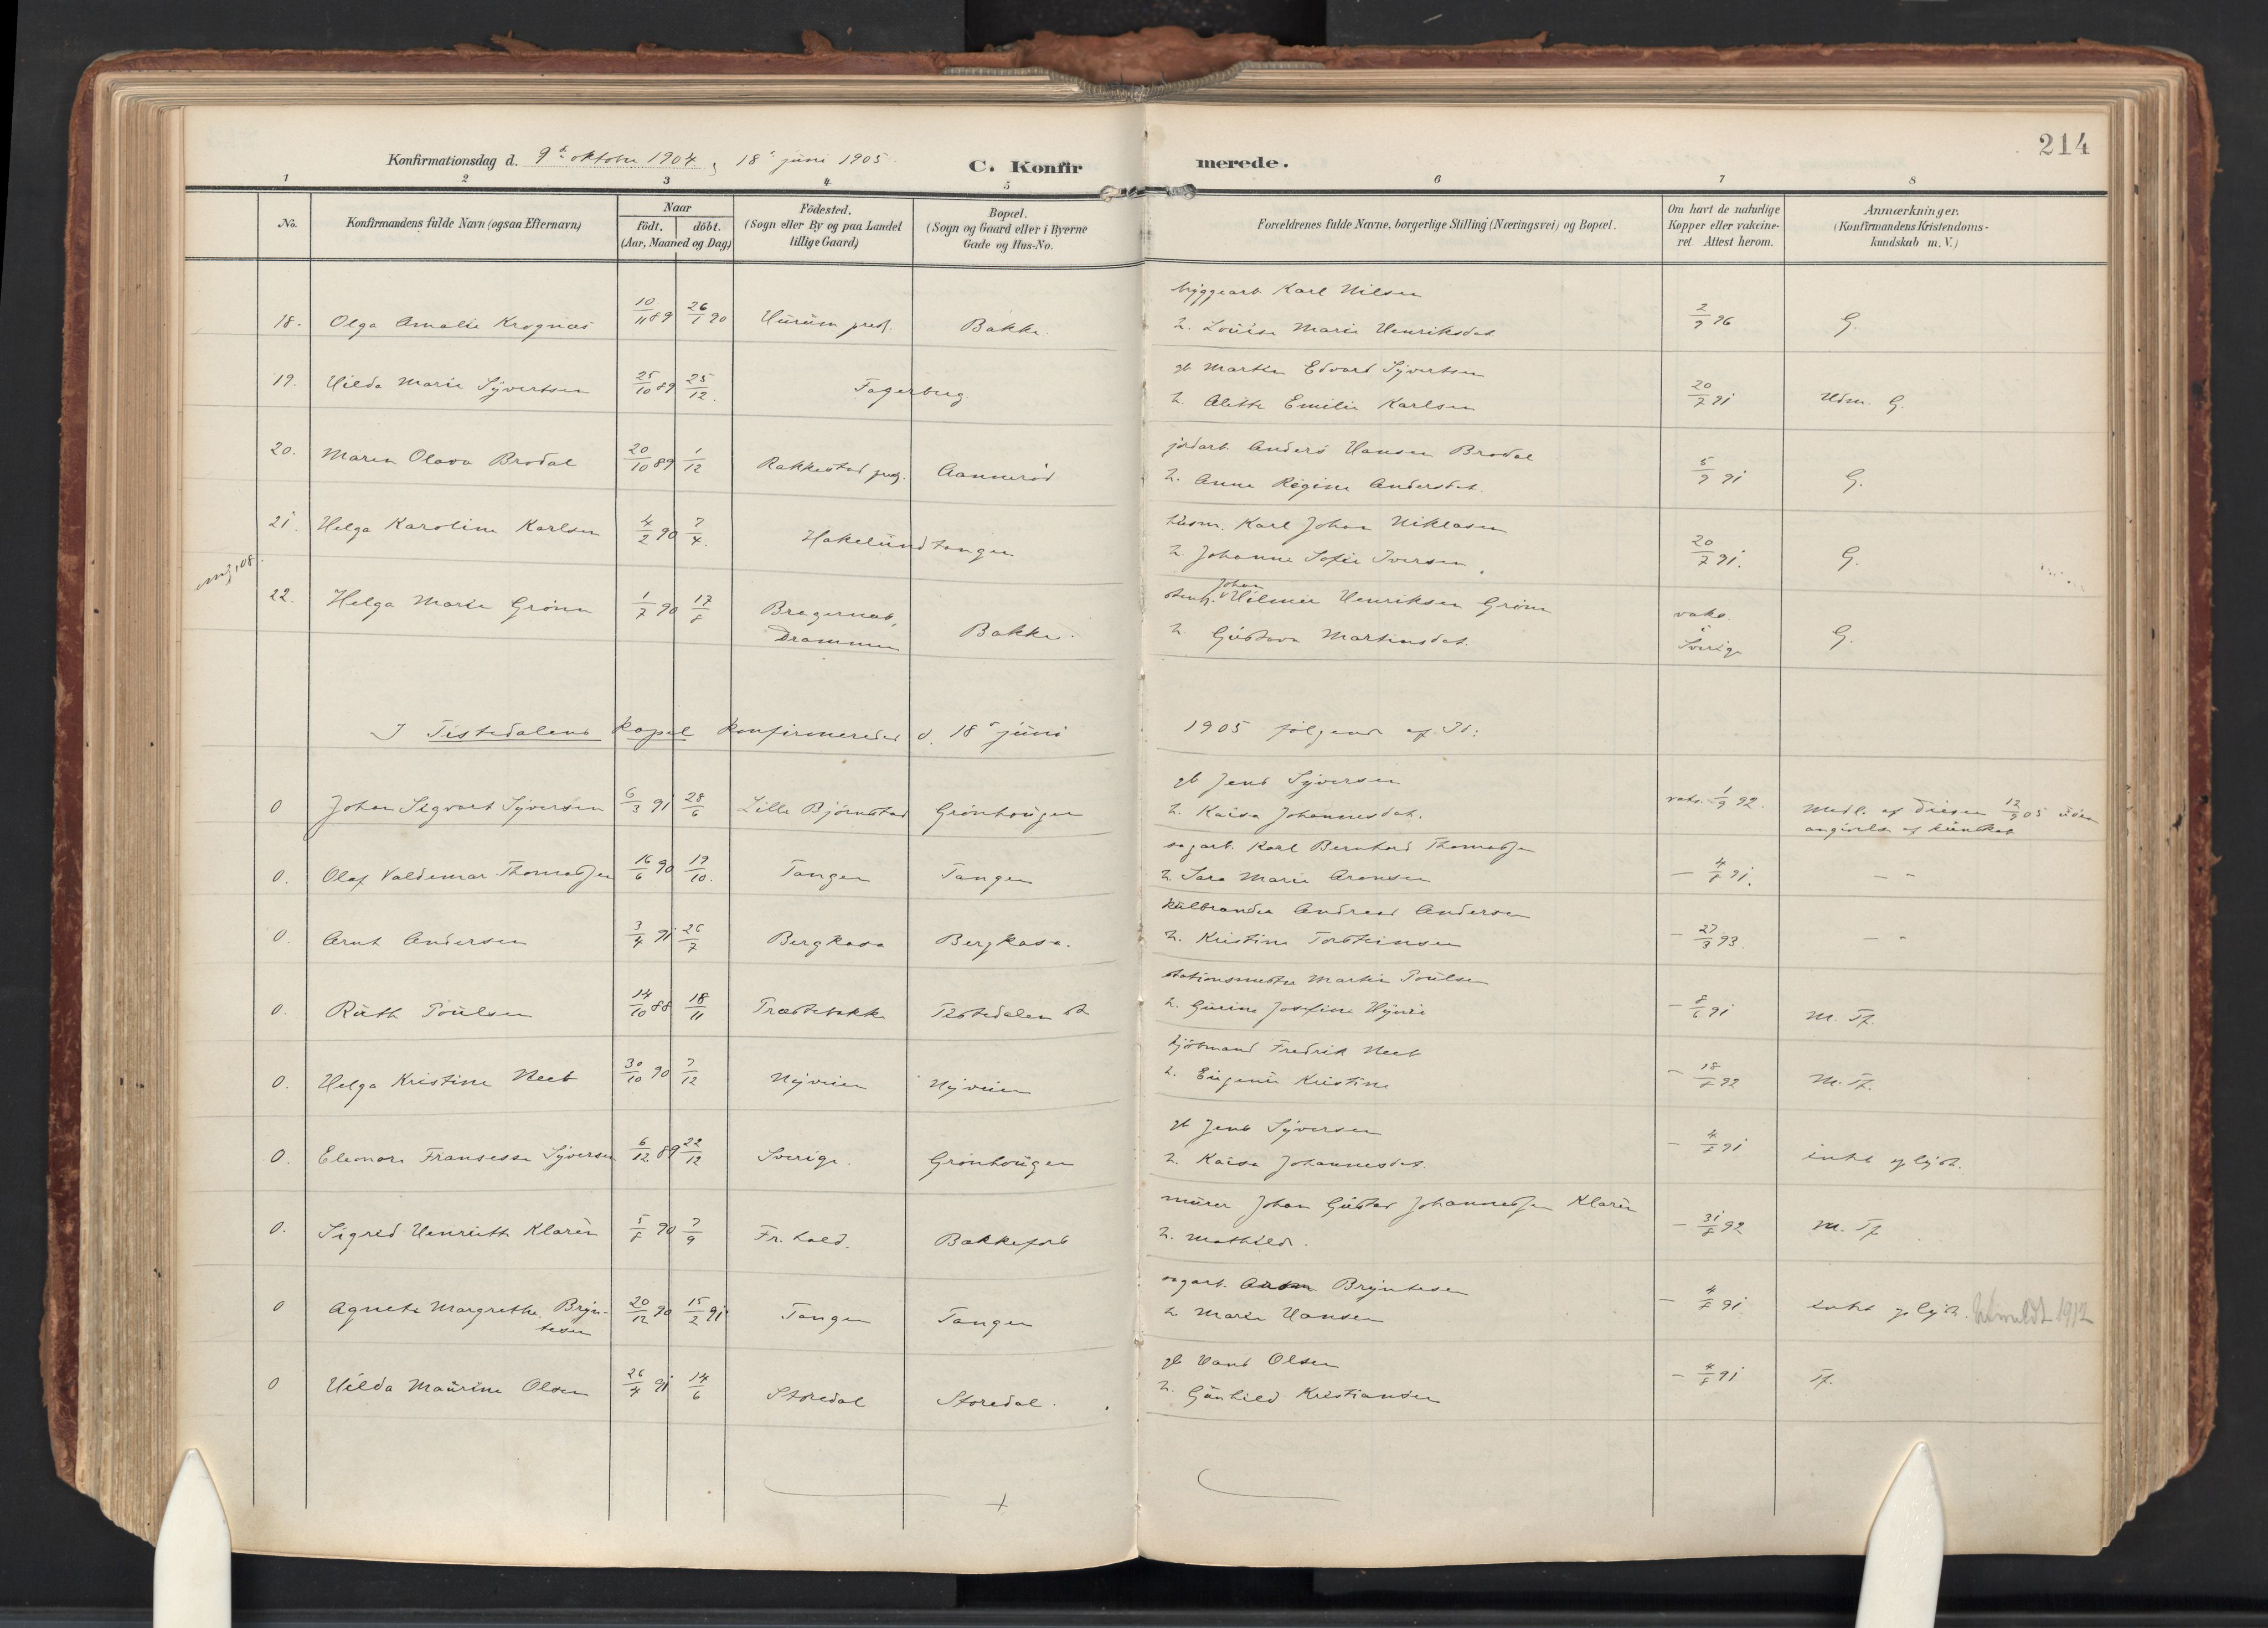 214
Konfirmationsdag d. 9de oktober 1904, 18de juni 1905. C. Konfirmerede.
1 2 3 4 5 6 7 8
No.
Konfirmandens fulde Navn (ogsaa Efternavn)
Naar
födt. döbt.
(Aar, Maaned og Dag)
Födested.
(Sogn eller By og paa Landet
tillige Gaard)
Bopæl.
(Sogn og Gaard eller i Byerne
Gade og Hus-No.
Forældrenes fulde Navne, borgerlige Stilling (Næringsvei) og Bopæl.
Om havt de naturlige
Kopper eller vakcine-
ret. Attest herom.
Anmærkninger.
(Konfirmandens Kristendoms-
kundskab m.V.)
bryggearb. Karl Nilsen
18. Olga Amalie Krognæs 10/11 89 26/1 90 Hurum presj. Bakke. h. Lovise Marie Henriksdat. 2/9 96 G.
gb Martin Edvard Syvertsen
19. Hilda Marie Syvertsen 25/10 89 25/12. Fagerberg. h. Alette Emilie Karlsen 20/7 91 Udm. G.
jordarb. Anders Hansen Brodal
20. Maren Olava Brodal 20/10 89 1/12 Rakkestad presj. Aannerød h. Anne Regine Andersdat. 5/9 91 G.
husm. Karl Johan Niklasen
21. Helga Karoline Karlsen 4/2 90 7/4. Hakelundtangen h. Johanne Sofie Iversen 20/7 91. G.
Johan
stenh. Hilmer Henriksen Grönn
22. Helga Marie Grönn 1/7 90 17/8 Bragernæs, Bakke. vakc.
Drammen h. Gustava Martinsdat. i Sverige G.
I Tistedalens kapel konfirmeredes d. 18de juni 1905 følgende af Id:
gb Jens Syversen
0 Johan Sigvart Syversen 6/3 91 28/6 Lille Bjørnstad Grønhougen h. Kaisa Johannesdat. vakc. 1/9 92. Medl. af Diesen 12/9 05 uden
angivelse af kundskab
sagarb. Karl Bernhard Thomassen
0. Olaf Valdemar Thomassen 16/6 90 19/10. Tangen Tangen h. Sara Marie Aronsen — 4/8 91. — "
kulbrænder Andreas Andersen
0. Arnt Andersen 3/4 91 26/7 Bergkasa Bergkasa. h. Kristine Torsteinsen — 27/3 93. — "
stationsmester Martin Poulsen
0. Ruth Poulsen 14/10 88 18/11 Præstebakke Tistedalen st h. Gurine Josefine — 8/6 91 M. Tf.
kjøbmand Fredrik Neeb
0. Helga Kristine Neeb 30/10 90 7/12 Nyveien Nyveien h. Eugenie Kristine — 18/8 92 M. Tf.
gb Jens Syversen
0. Eleonore Fransesse Syversen 6/12 89 22/12 Sverige. Grønhougen h. Kaisa Johannesdat. — 4/8 91 intet oplyst.
murer Johan Gustav Johannessen Klarèn
0. Sigrid Henriette Klarèn 5/8 90 7/9 Fr.hald. Bakkefort h. Mathilde. — 31/8 92 M. Tf
sagarb. Anton Bryntesen
0 Agnete Margrethe Bryn- 20/12 90 15/2 91 Tangen Tangen h. Marie Hansen — 4/8 91 intet oplyst. Utmeldt 1912
tesen
gb Hans Olsen
0 Hilda Maurine Olsen 26/4 91 14/6 Storedal Storedal. h. Gunhild Kristiansen — 4/8 91 Tf.